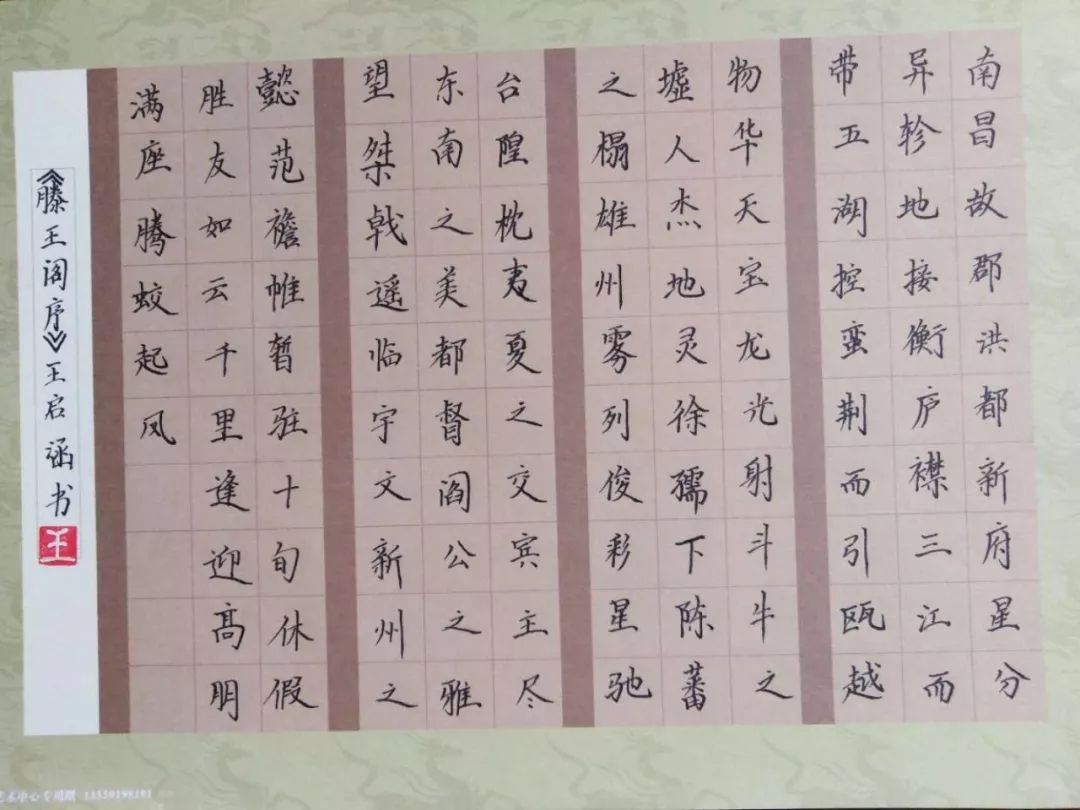 南昌故郡洪都新府星分
异轸地接衡庐襟三江而
带五湖控蛮荆而引瓯越
物华天宝龙光射斗牛之
墟人杰地灵徐孺下陈蕃
之榻雄州雾列俊彩星驰
台隍枕夷夏之交宾主尽
东南之美都督阎公之雅
望棨戟遥临宇文新州之
懿范襜帷暂驻十旬休假
胜友如云千里逢迎高朋
满座腾蛟起凤
《滕王阁序》王启涵书
王
艺术中心专用